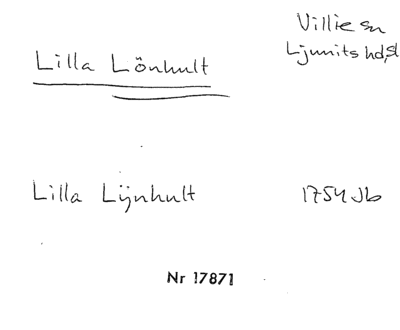 Villie sn
Ljunits hd, sl
Lilla Lönhult
Lilla Lijnhult 1754 Jb
Nr 17871